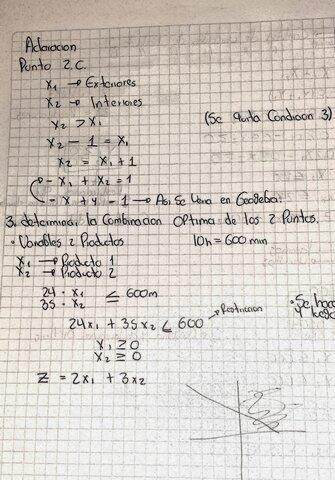 Aclaracion
Punto 2.C.
x₁ → Exteriores
x₂ → Interiores
x₂ > x₁
(Se quita Condicion 3)
x₂ - 1 = x₁
x₂ = x₁ + 1
- x₁ + x₂ = 1
- x + y - 1 → Asi Se Veria en Geogebra.
3. determina la Combinacion Optima de los 2 Puntos.
• Variables 2 Productos 10h = 600 min
x₁ → Producto 1
x₂ → Producto 2
24 · x₁
35 · x₂ ≤ 600m
24x₁ + 35x₂ ≤ 600 → Restriccion
• Se hace
y luego
x₁ ≥ 0
x₂ ≥ 0
Z = 2x₁ + 3x₂